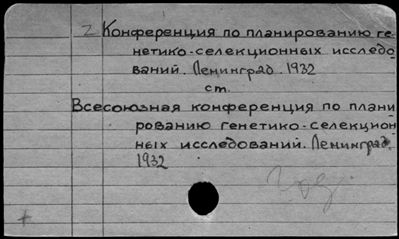 2 Конференция по планированию ге-
нетико-селекционных исследо-
ваний. Ленинград. 1932
ст.
Всесоюзная конференция по плани
рованию генетико-селекцион
ных исследований. Ленинград.
1932